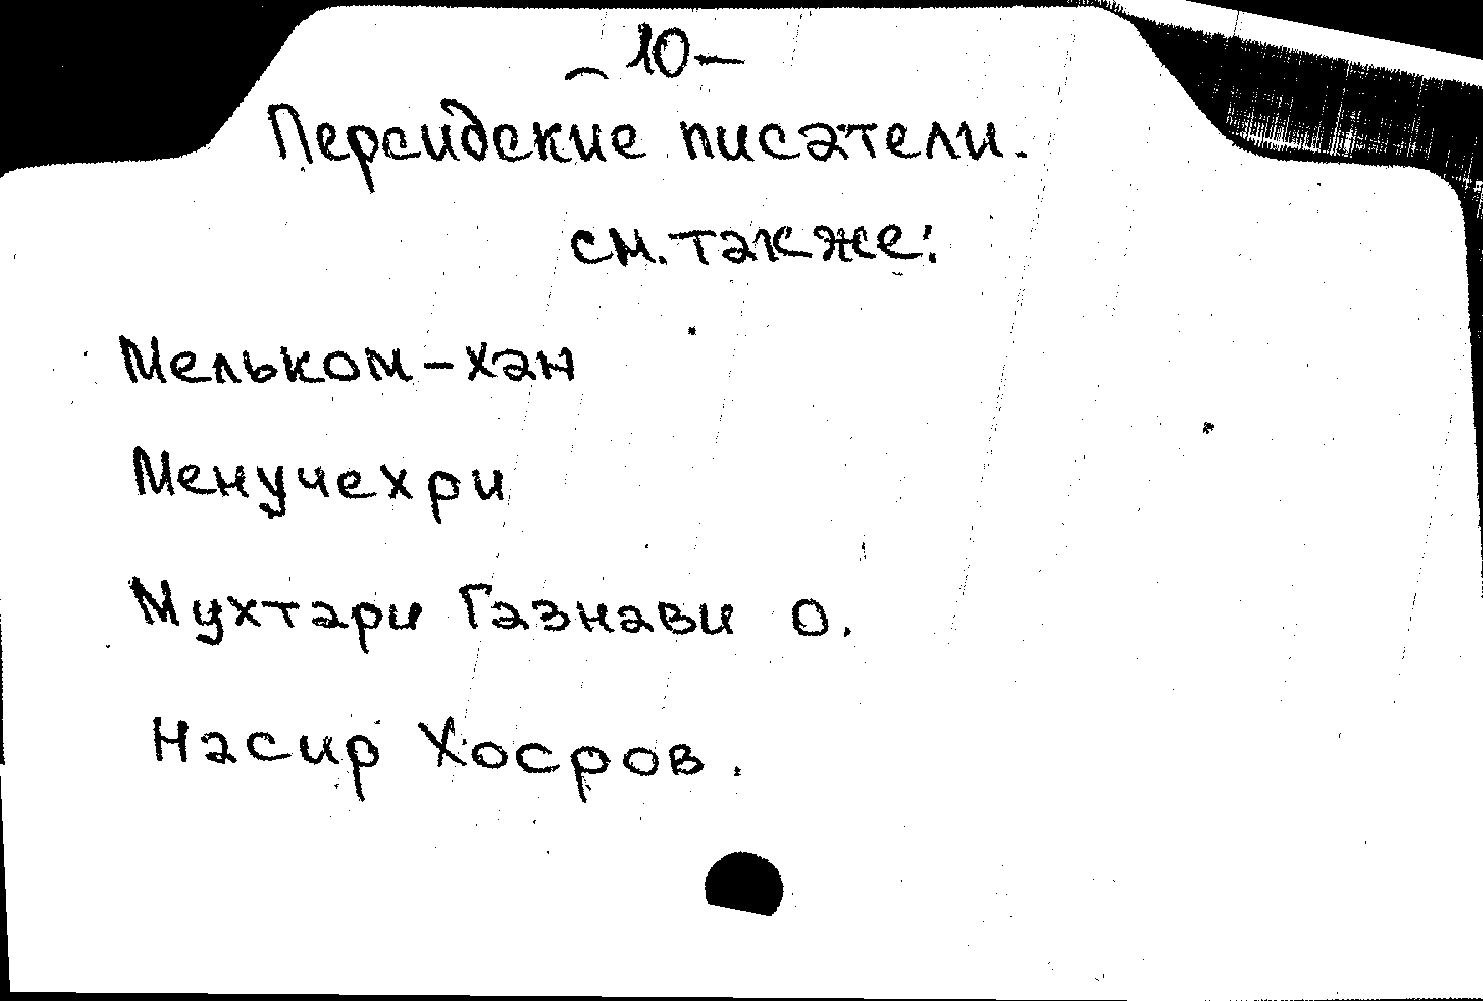 - 10 -
Персидские писатели.
см. также:
Мельком-хан
Менучехри
Мухтари Газнави О.
Насир Хосров.